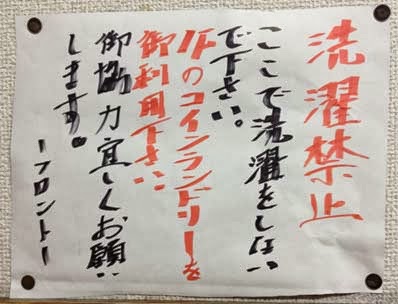 洗濯禁止
ここで洗濯をしない
で下さい。
1Fのコインランドリーを
御利用下さい
御協力宜しくお願い
します。
ーフロントー